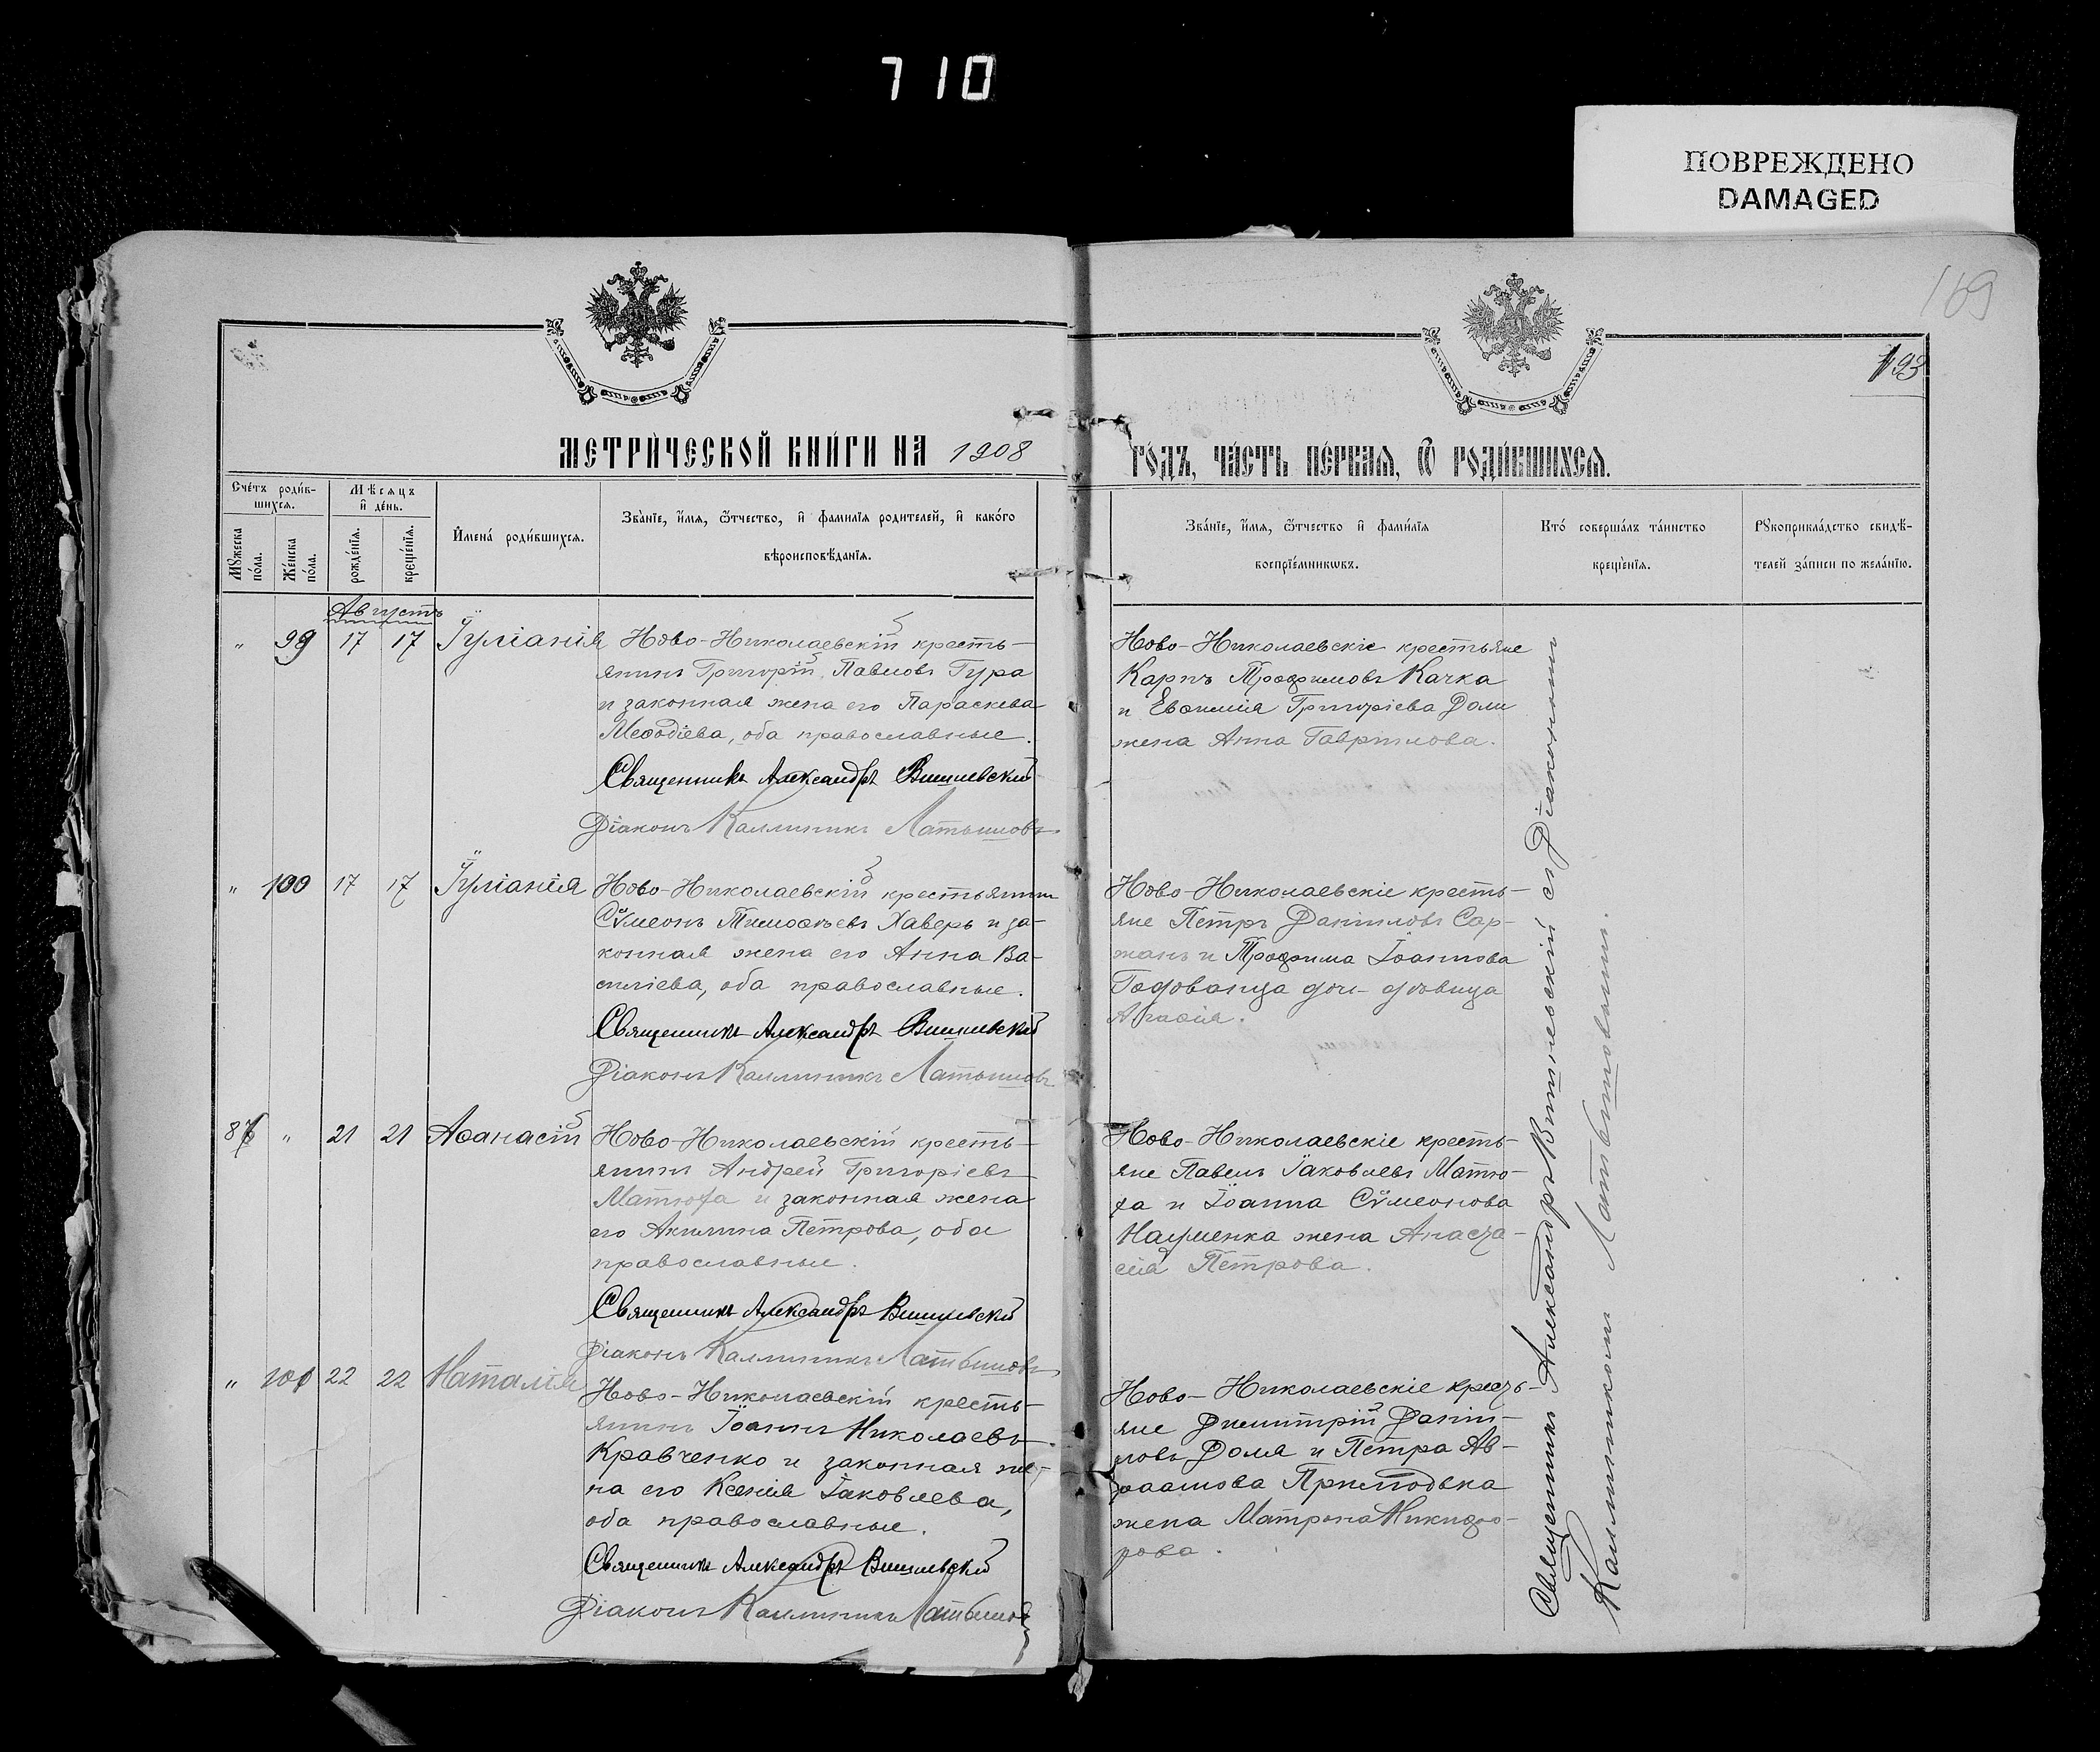 710
ПОВРЕЖДЕНО
DAMAGED
169
193
МЕТРИ́ЧЕСКОЙ КНИ́ГИ НА 1908
ГО́ДЪ, ЧА́СТЬ ПЕ́РВАЯ, Ѿ РОДИ́ВШИХСЯ.
Сче́тъ роди́в-
шихся.
Мꙋ́жеска
по́ла.
Же́нска
по́ла.
Мѣ́сяцъ
и҆ де́нь.
рожде́нїѧ.
креще́нїѧ.
И҆мена́ роди́вшихсѧ.
Зва́нїе, и҆́мѧ, ѻ҆́тчество, и҆ фами́лїѧ родителей, и҆ како́го
вѣроисповѣ́данїѧ.
Зва́нїе, и҆́мѧ, ѻ҆́тчество и҆ фами́лїѧ
воспрїе́мникѡвъ.
Кто́ соверша́лъ та́инство
креще́нїѧ.
Рꙋкоприкла́дство свидѣ́-
телей за́писи по жела́нїю.
Августъ
" 99 17 17 Іуліанія
Ново-Николаевскій кресть-
янинъ Григорій Павловъ Гура
и законная жена его Параскева
Меѳодіева, оба православные.
Священникъ Александръ Вишневскій
Діаконъ Каллиникъ Латышовъ
Ново-Николаевскіе крестьяне
Карпъ Трофимовъ Качка
и Евѳимія Григоріева Доли
жена Анна Гаврилова.
" 100 17 17 Іуліанія
Ново-Николаевскій крестьянинъ
Сѵмеонъ Тимоѳеевъ Хаверь и за-
конная жена его Анна Ва-
силіева, оба православные.
Священникъ Александръ Вишневскій
Діаконъ Каллиникъ Латышовъ
Ново-Николаевскіе кресть-
яне Петръ Даниловъ Сар-
жанъ и Трофима Іоаннова
Годованца доч- дѣвица
Агаѳія.
87 " 21 21 Аѳанасій
Ново-Николаевскій кресть-
янинъ Андрей Григоріевъ
Матюха и законная жена
его Акилина Петрова, оба
православные.
Священникъ Александръ Вишневскій
Діаконъ Каллиникъ Латышовъ
Ново-Николаевскіе кресть-
яне Павелъ Іаковлевъ Матю-
ха и Іоанна Сѵмеонова
Науменка жена Анаста-
сія Петрова.
" 101 22 22 Наталія
Ново-Николаевскій кресть-
янинъ Іоаннъ Николаевъ
Кравченко и законная же-
на его Ксенія Іаковлева,
оба православные.
Священникъ Александръ Вишневскій
Діаконъ Каллиникъ Латышовъ
Ново-Николаевскіе кресть-
яне Димитрій Дани-
ловъ Доля и Петра Ав-
раамова Приходька
жена Матрона Никифо-
рова.
Священникъ Александръ Вишневскій съ Діакономъ
Каллиникомъ Латышовымъ.